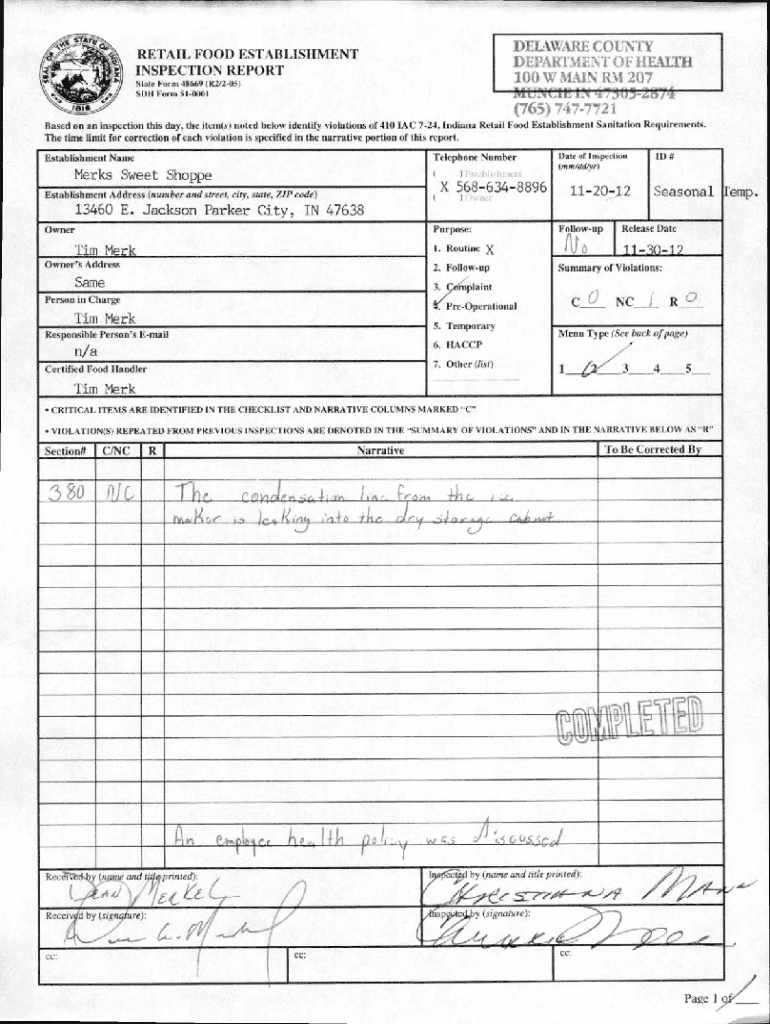 SEAL OF THE STATE OF INDIANA
1816
RETAIL FOOD ESTABLISHMENT
INSPECTION REPORT
State Form 48669 (R2/2-05)
SDH Form 51-0001
DELAWARE COUNTY
DEPARTMENT OF HEALTH
100 W MAIN RM 207
MUNCIE IN 47305-2874
(765) 747-7721
Based on an inspection this day, the item(s) noted below identify violations of 410 IAC 7-24, Indiana Retail Food Establishment Sanitation Requirements.
The time limit for correction of each violation is specified in the narrative portion of this report.
Establishment Name
Merks Sweet Shoppe
Telephone Number
( ) Establishment
X 568-634-8896
( ) Owner
Date of Inspection
(mm/dd/yr)
11-20-12
ID #
Seasonal Temp.
Establishment Address (number and street, city, state, ZIP code)
13460 E. Jackson Parker City, IN 47638
Owner
Tim Merk
Purpose:
1. Routine X
2. Follow-up
3. Complaint
4. Pre-Operational
5. Temporary
6. HACCP
7. Other (list)
Follow-up
No
Release Date
11-30-12
Owner's Address
Same
Summary of Violations:
C 0 NC 1 R 0
Person in Charge
Tim Merk
Responsible Person's E-mail
n/a
Menu Type (See back of page)
1 2 3 4 5
Certified Food Handler
Tim Merk
• CRITICAL ITEMS ARE IDENTIFIED IN THE CHECKLIST AND NARRATIVE COLUMNS MARKED "C"
• VIOLATION(S) REPEATED FROM PREVIOUS INSPECTIONS ARE DENOTED IN THE "SUMMARY OF VIOLATIONS" AND IN THE NARRATIVE BELOW AS "R"
Section# C/NC R Narrative To Be Corrected By
380 NC The condensation line from the ice
maker is leaking into the dry storage cabinet
COMPLETED
An employee health policy was discussed
Received by (name and title printed):
Inspected by (name and title printed):
Received by (signature):
Inspected by (signature):
cc:
cc:
cc:
Page 1 of 1